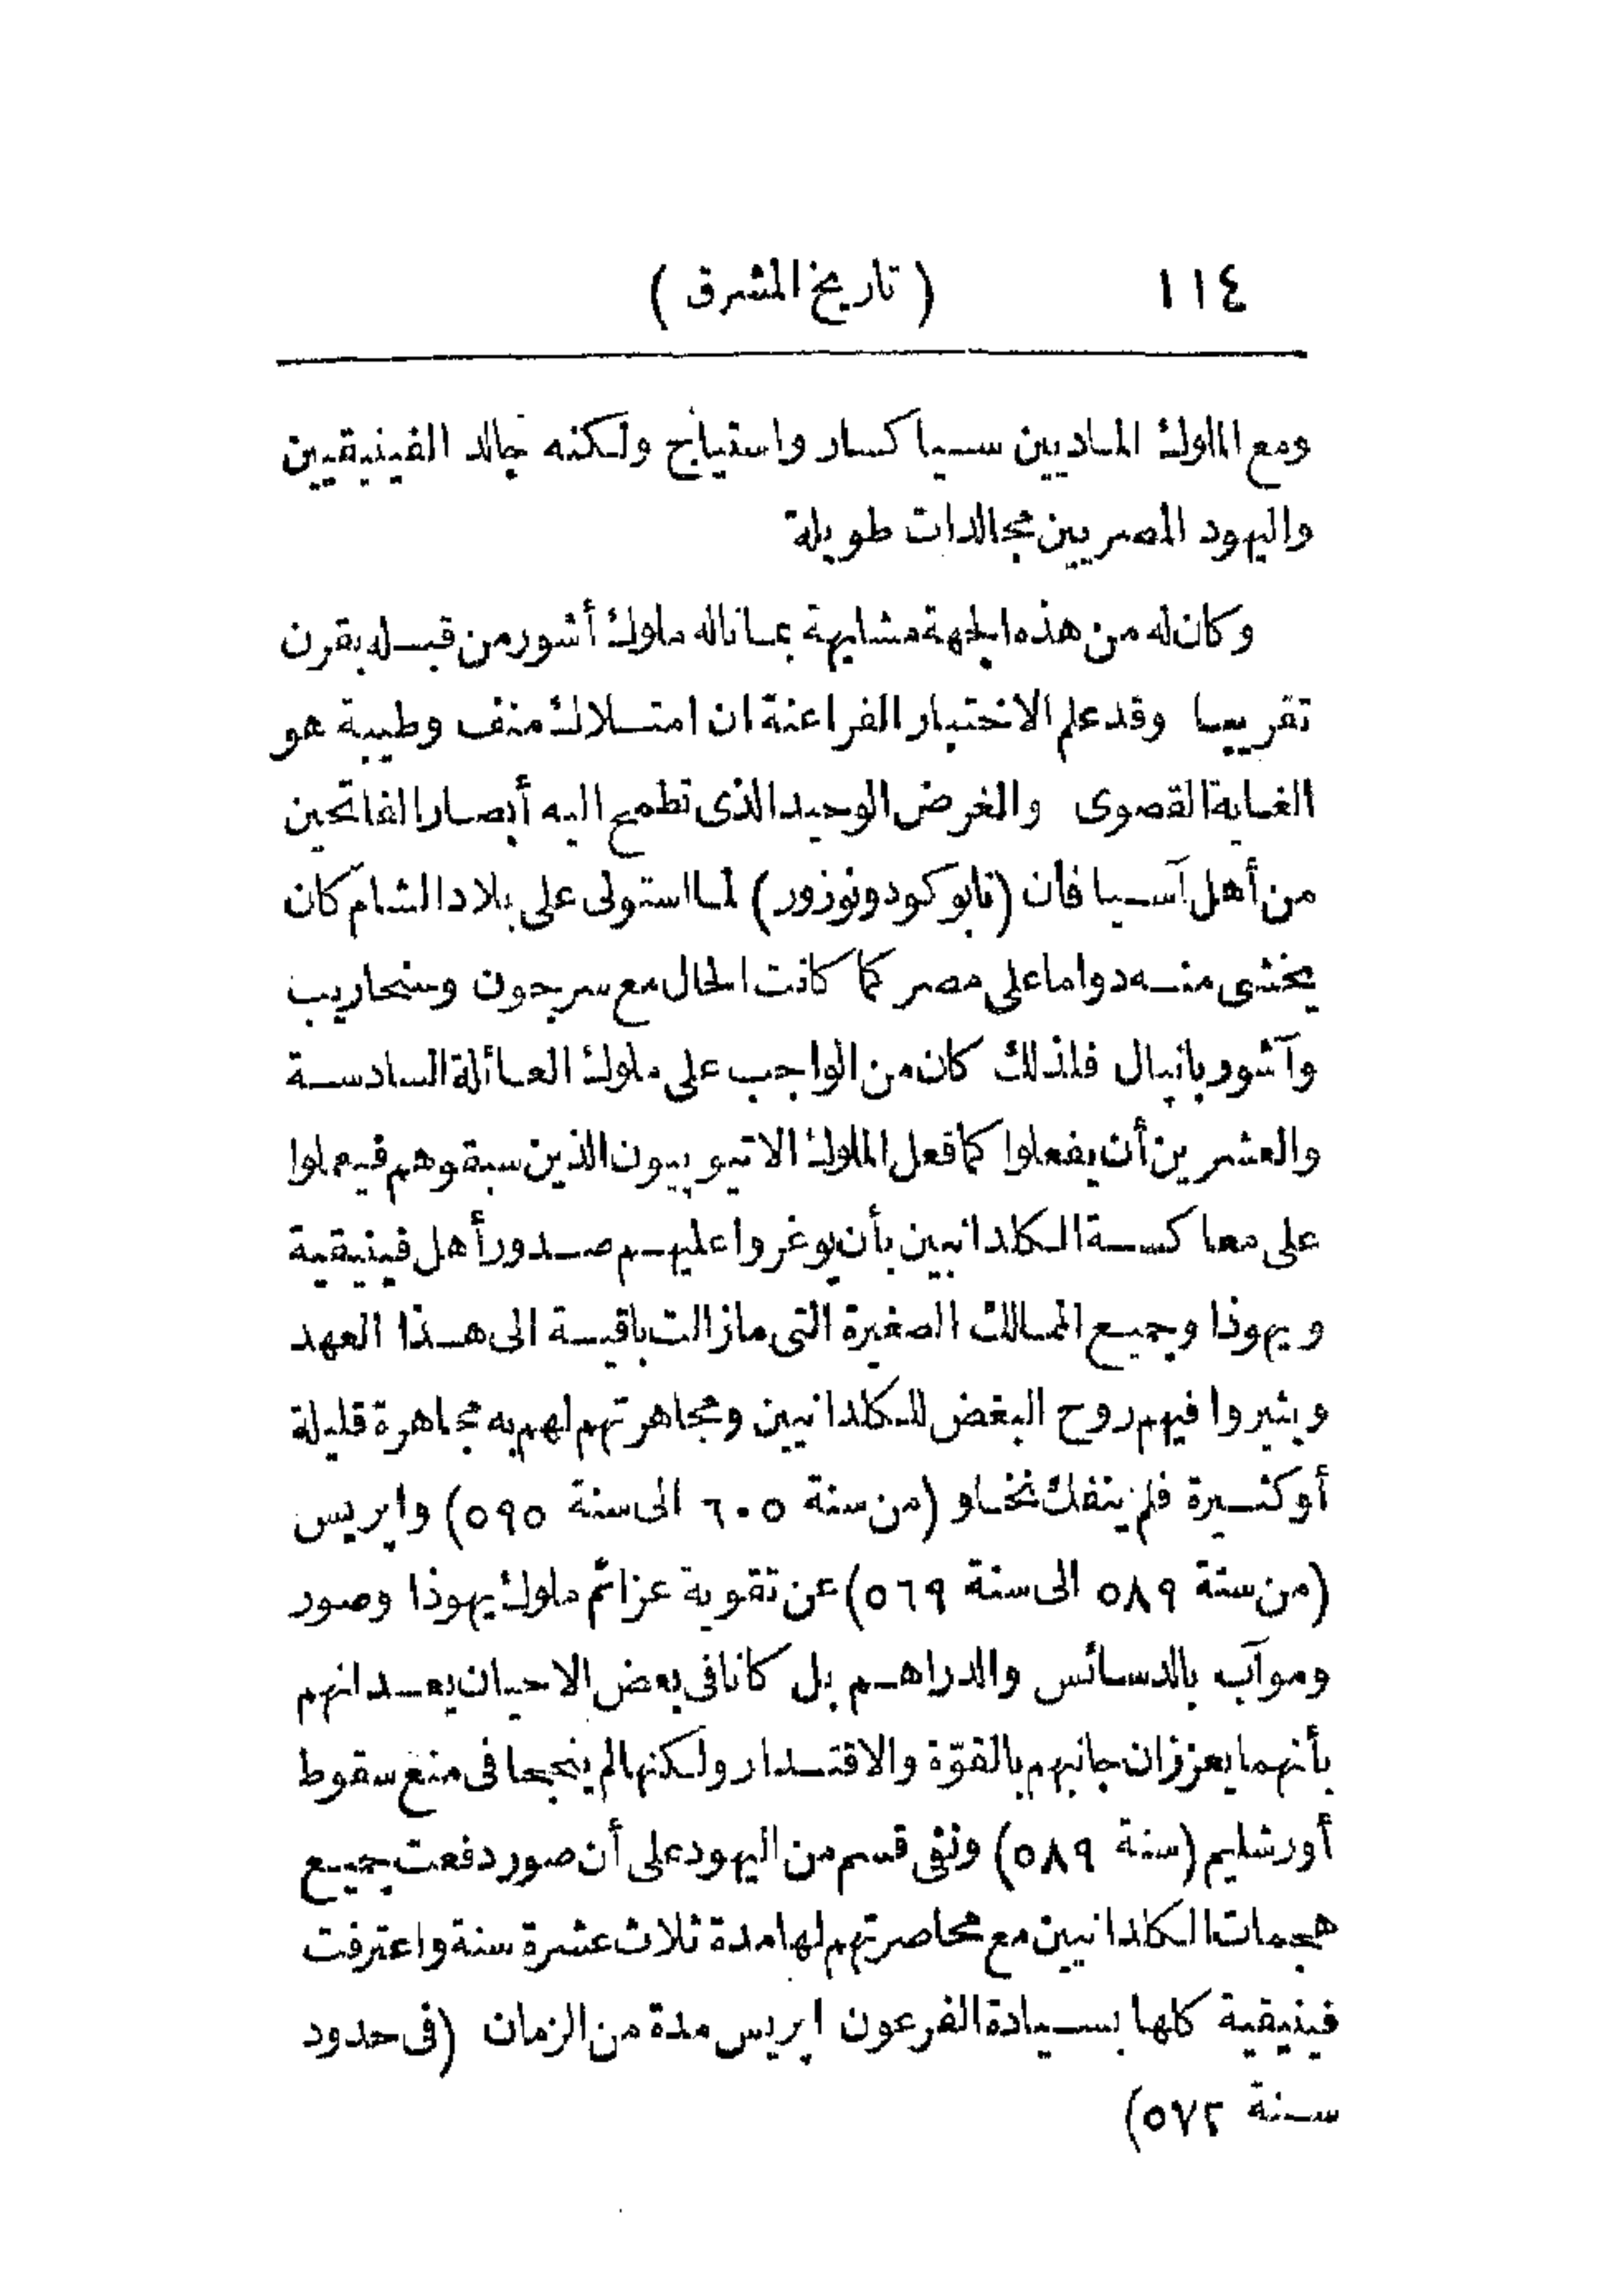 ١١٤
( تاريخ المشرق )
ومع الملوك الماديين سيا كسار واستياج ولكنه جالد الفينيقيين
واليهود المصريين مجالدات طويلة
وكان له من هذه الجهة مشابهة بما ناله ملوك أشور من قبله بقرن
تقريبا وقد علم الاختبار الفراعنة ان امتلاك منف وطيبة هو
الغاية القصوى والغرض الوحيد الذى تطمح اليه أبصار الفاتحين
من أهل آسيا فان (نابو كودونوزور) لما استولى على بلاد الشام كان
يخشى منه دواما على مصر كما كانت الحال مع سرجون وسنحاريب
وآشور بانيبال فلذلك كان من الواجب على ملوك العائلة السادسة
والعشرين أن يفعلوا كما فعل الملوك الاتيوبيون الذين سبقوهم فيعملوا
على معاكسة الكلدانيين بأن يوغروا عليهم صدور أهل فينيقية
ويهوذا وجميع الممالك الصغيرة التى مازالت باقية الى هذا العهد
ويثيروا فيهم روح البغض للكلدانيين ومجاهرتهم لهم به مجاهرة قليلة
أو كثيرة فلم ينفك نخاو (من سنة ٦٠٥ الى سنة ٥٩٥) وابريس
(من سنة ٥٨٩ الى سنة ٥٦٩) عن تقوية عزائم ملوك يهوذا وصور
وموآب بالدسائس والدراهم بل كانا فى بعض الاحيان يعدانهم
بأنهما يعززان جانبهم بالقوّة والاقتدار ولكنها لم ينجحا فى منع سقوط
أورشليم (سنة ٥٨٩) ونفى قسم من اليهود على أن صور دفعت جميع
هجمات الكلدانيين مع محاصرتهم لها مدة ثلاث عشرة سنة واعترفت
فينيقية كلها بسيادة الفرعون ابريس مدة من الزمان (فى حدود
سنة ٥٧٢)